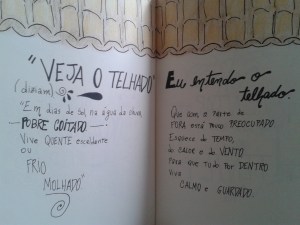 "VEJA O TELHADO"
(diziam)
"Em dias de Sol, na água da chuva,
-POBRE COITADO-
Vive QUENTE escaldante
ou
FRIO
MOLHADO"
Eu entendo o
telhado.
Que com a parte de
FORA está pouco PREOCUPADO
Esquece do TEMPO,
do CALOR e do VENTO
Para que tudo por DENTRO
Viva
CALMO e GUARDADO.